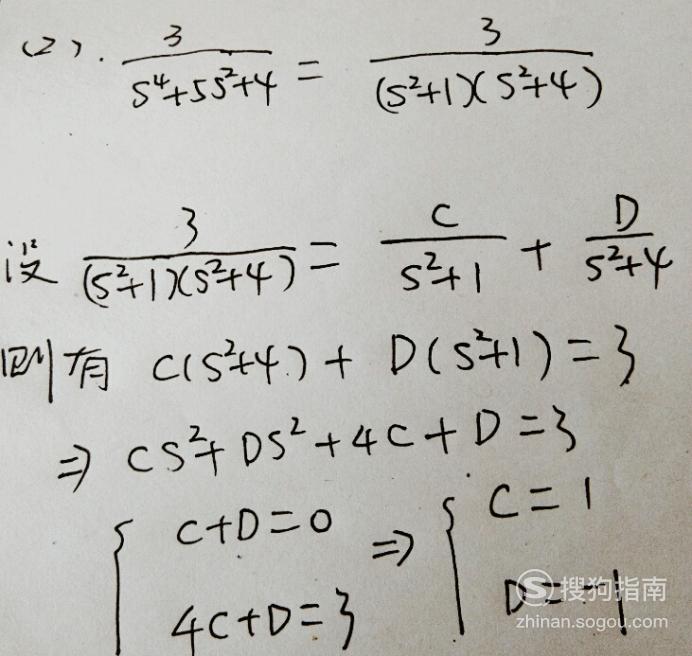 (2). 3/(S⁴+5S²+4) = 3/((S²+1)(S²+4))
设 3/((S²+1)(S²+4)) = C/(S²+1) + D/(S²+4)
则有 C(S²+4) + D(S²+1) = 3
⇒ CS²+DS²+4C+D=3
{ C+D=0 ⇒ { C=1
4C+D=3 D=-1
搜狗指南
zhinan.sogou.com